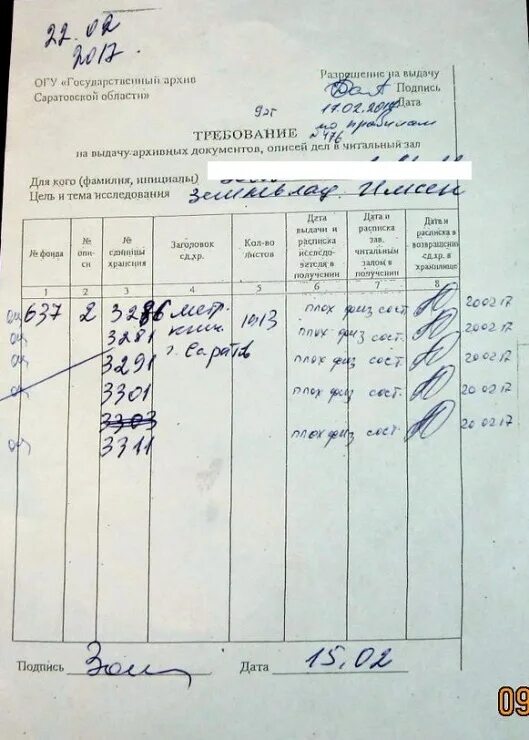 22.02
2017
ОГУ «Государственный архив
Саратовской области»
Разрешение на выдачу
Подпись
17.02.2017 Дата
по правилам
№ 476
ТРЕБОВАНИЕ
на выдачу архивных документов, описей дел в читальный зал
Для кого (фамилия, инициалы)
Цель и тема исследования
№ фонда
№ описи
№ единицы хранения
Заголовок ед.хр.
Кол-во листов
Дата выдачи и расписка исследователя в получении
Дата и расписка зав. читальным залом в получении
Дата и расписка в возвращении ед.хр. в хранилище
1 2 3 4 5 6 7 8
637 2 3286 метр. 1913 плох физ сост. 20.02.17
3281 книги плох физ сост. 20.02.17
3291 г. Саратов плох физ сост. 20.02.17
3301 плох физ сост. 20.02.17
3303
3311 плох физ сост. 20.02.17
Подпись
Дата 15.02
09